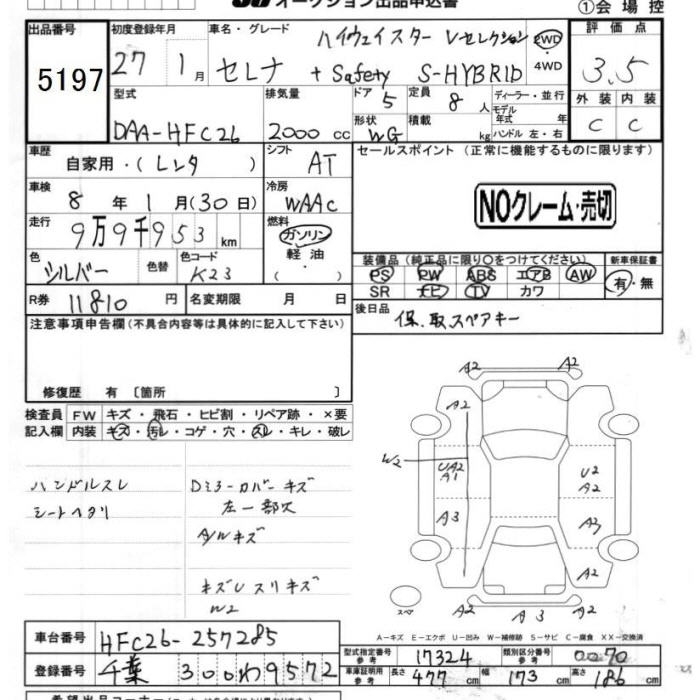 オークション出品申込書
①会場控
出品番号 5197
初度登録年月 27年 1月
車名・グレード ハイウェイスター Vセレクション 2WD
セレナ + Safety S-HYBRID 4WD
評価点 3.5
型式 DAA-HFC26
排気量 2000 cc
ドア 5 定員 8人
形状 WG 積載 kg
ディーラー・並行
モデル年式 年
ハンドル 左・右
外装 内装
C C
車歴 自家用・(レンタ )
シフト AT
セールスポイント (正常に機能するものに限ります)
NOクレーム・売切
車検 8年 1月(30日)
冷房 WAAC
走行 9万9千953 km
燃料 ガソリン
軽油・
( )
色 シルバー 色替
色コード K23
装備品 (純正品に限り○をつけてください) 新車保証書
PS PW ABS エアB AW
SR ナビ TV カワ
有・無
R券 11810 円
名変期限 月 日
後日品 保、取、スペアキー
注意事項申告欄 (不具合内容等は具体的に記入して下さい)
修復歴 有 〔箇所 〕
検査員 FW キズ・飛石・ヒビ割・リペア跡・×要
記入欄 内装 キズ・汚レ・コゲ・穴・スレ・キレ・破レ
ハンドルスレ
シートヘタリ
Dミラーカバーキズ
左一部欠
A/Wキズ
キズUスリキズ
W2
A2 A2
A2
W2
UA2
A1
U2
A2
A3 A3
A2 A2
A2 A3 A2
スペ
A-キズ E-エクボ U-凹み W-補修跡 S-サビ C-腐食 XX-交換済
車台番号 HFC26-257285
登録番号 千葉 300わ9572
型式指定番号 参考 17324
類別区分番号 参考 0070
車庫証明用 参考 長さ 477 cm 幅 173 cm 高さ 186 cm